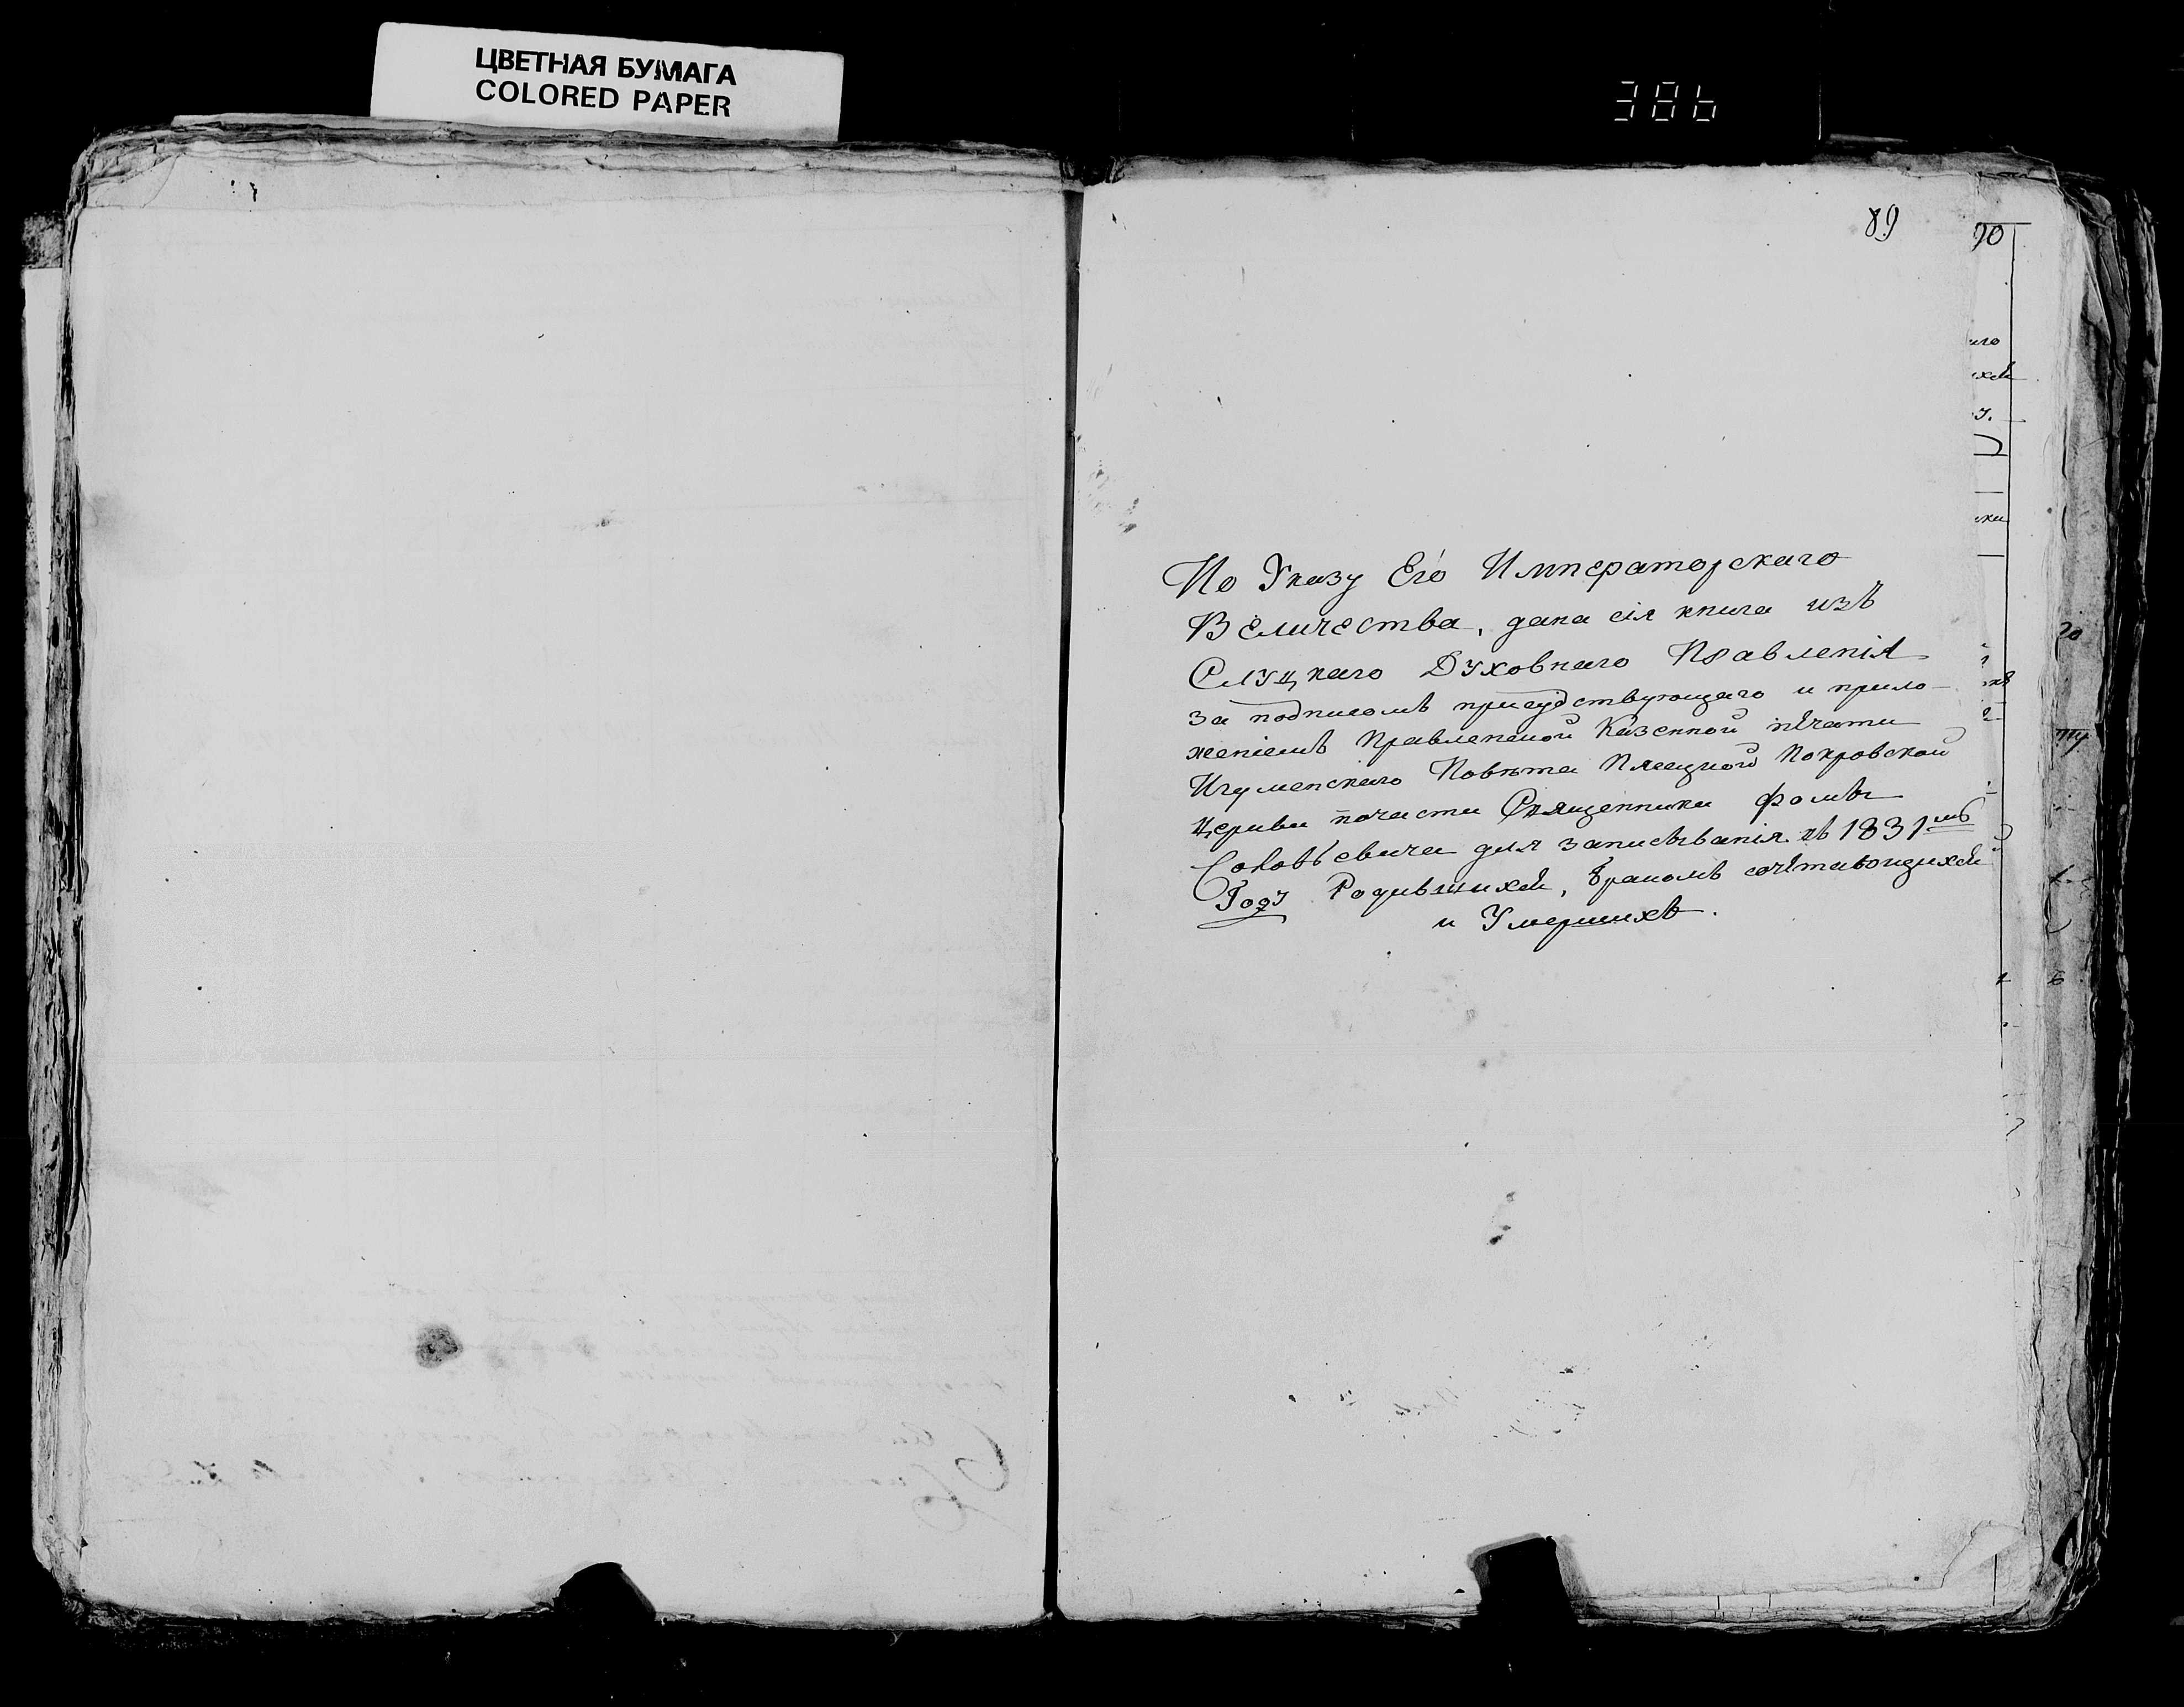 ЦВЕТНАЯ БУМАГА
COLORED PAPER
386
89
90
По Указу Его Императорскаго
Величества, дана сія книга изъ
Слуцкаго Духовнаго Правленія
за подписомъ присудствующаго и прило-
женіемъ Правленской Казенной печати
Игуменскаго Повѣта Пясецкой Покровской
церкви по части Священника Фомы
Соловьевича для записыванія въ 1831мъ
Году Родившихся, бракомъ сочетавющихся
и Умершихъ.